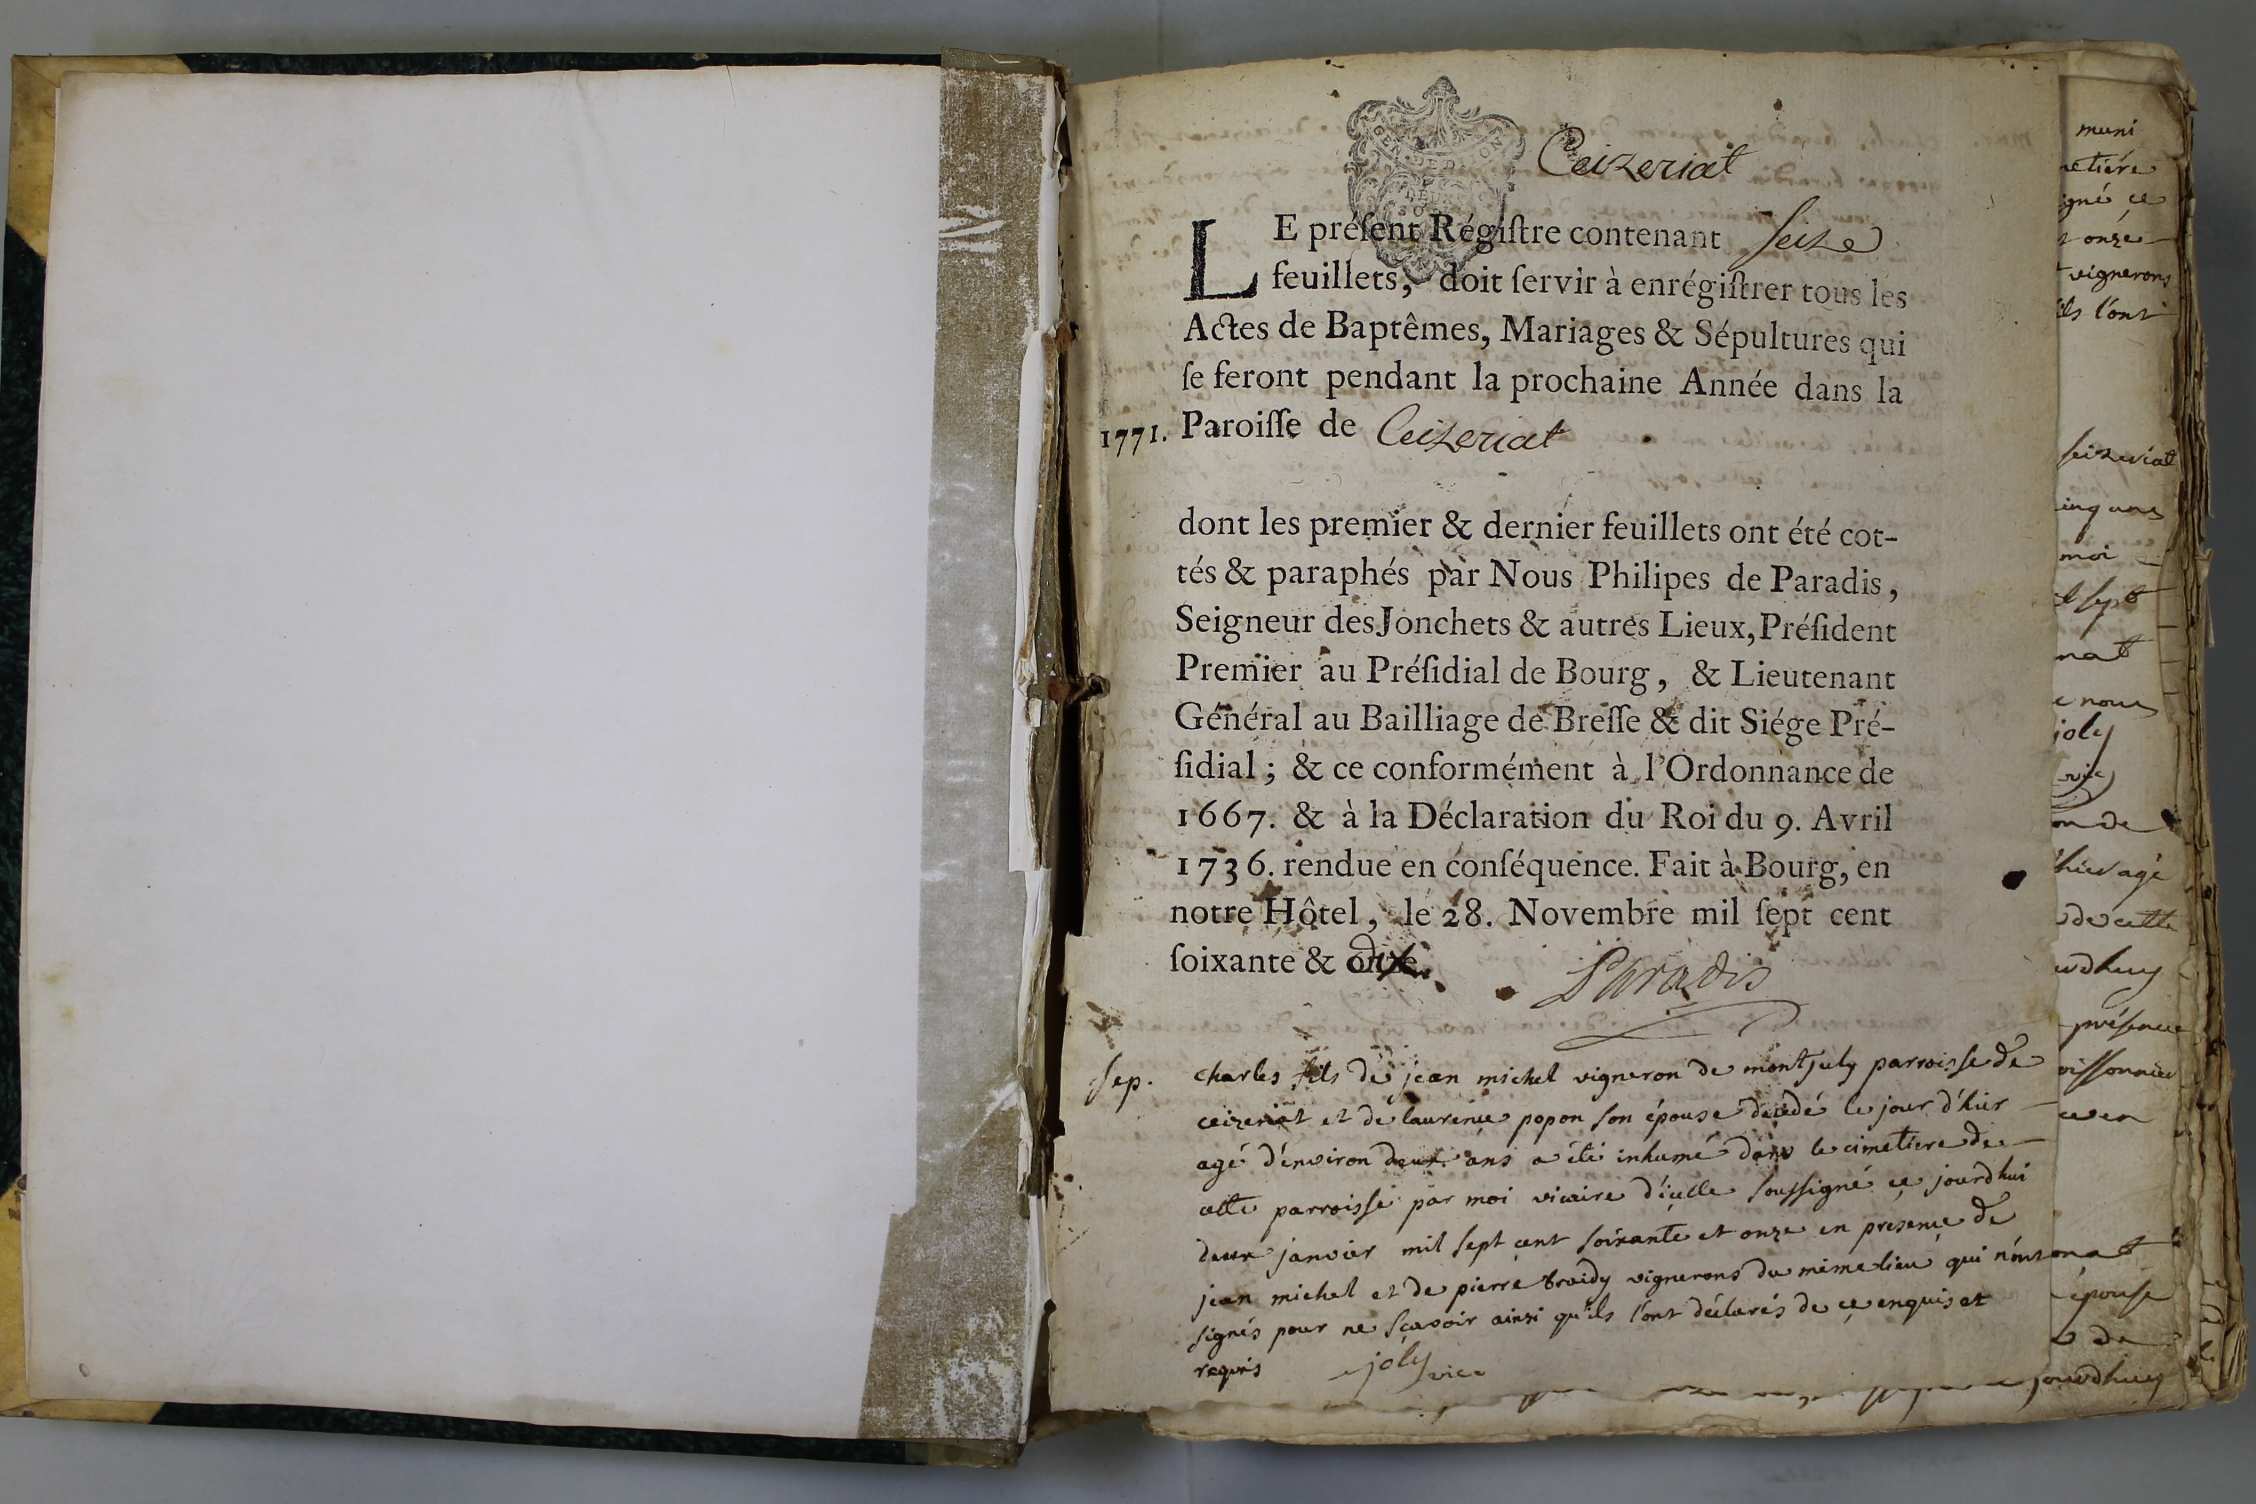 GEN. DE DIJON
Ceizeriat
LE préſent Régiſtre contenant seize
feuillets, doit ſervir à enrégiſtrer tous les
Actes de Baptêmes, Mariages & Sépultures qui
ſe feront pendant la prochaine Année dans la
1771. Paroiſſe de Ceizeriat
dont les premier & dernier feuillets ont été cot-
tés & paraphés par Nous Philipes de Paradis,
Seigneur des Jonchets & autres Lieux, Préſident
Premier au Préſidial de Bourg, & Lieutenant
Général au Bailliage de Breſſe & dit Siége Pré-
ſidial; & ce conformément à l'Ordonnance de
1667. & à la Déclaration du Roi du 9. Avril
1736. rendue en conſéquence. Fait à Bourg, en
notre Hôtel, le 28. Novembre mil ſept cent
ſoixante & dix
Paradis
sep. charles fils de jean michel vigneron de montjuly parroisse de
ceizeriat et de laurence popon son épouse décédé le jour d'hier
agé d'environ deux ans a été inhumé dans le cimetiere de
cette parroisse par moi vicaire d'icelle soussigné ce jourdhui
deux janvier mil sept cent soixante et onze en presence de
jean michel et de pierre braidy vignerons du même lieu qui n'ont
signés pour ne sçavoir ainsi qu'ils l'ont déclarés de ce enquis et
requis joly vic.
muni
metiére
igné ce
onze
vignerons
ils l'ont
seizeriat
cinq ans
moi
sept
nat
e nous
joly
vic
on de
hier agé
de cette
urdhuy
présence
oissonnier
nat
épouse
de
jourdhuy